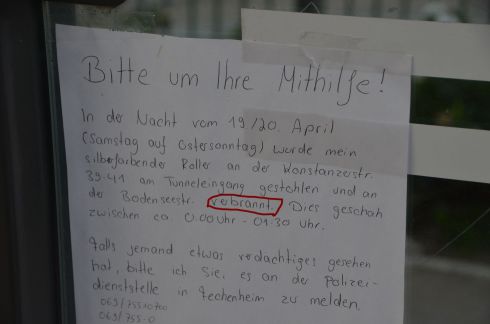 Bitte um Ihre Mithilfe!
In der Nacht vom 19/20. April
(Samstag auf Ostersonntag) wurde mein
silberfarbender Roller an der Konstanzerstr.
39-41 am Tunneleingang gestohlen und an
der Bodenseestr. verbrannt. Dies geschah
zwischen ca. 0.00 Uhr - 01.30 Uhr.
Falls jemand etwas verdächtiges gesehen
hat, bitte ich Sie, es an der Polizei-
dienststelle in Fechenheim zu melden.
069/75510700
069/755-0